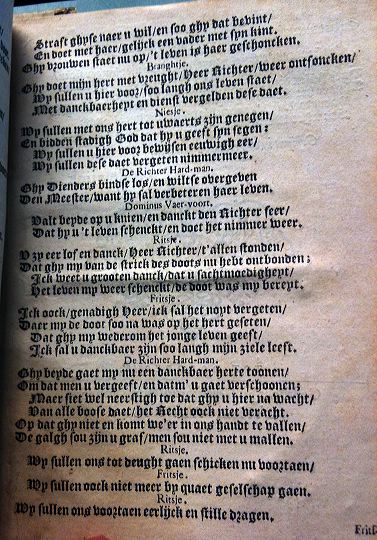 Straft ghyse naer u wil/en soo ghy dat bevint/
En doet met haer/gelijck een vader met syn kint.
Ghy vrouwen staet nu op/'t leven is haer geschoncken.
Branghtje.
Ghy doet mijn hert met vreught/Heer Richter/weer ontfoncken/
Wy sullen u hier voor/soo langh ons leven staet/
Met danckbaerheyt en dienst vergelden dese daet.
Niesje.
Wy sullen met ons hert tot uwaerts zijn genegen/
En bidden stadigh God dat hy u geeft syn segen:
Wy sullen u hier voor bewijsen eeuwigh eer/
Wy sullen dese daet vergeten nimmermeer.
De Richter Hard-man.
Ghy Dienders bindse los/en wiltse overgeven
Den Meester/want hy sal verbeteren haer leven.
Dominus Vaer-voort.
Valt beyde op u knien/en danckt den Richter seer/
Dat hy u 't leven schenckt/en doet het nimmer weer.
Ritsje.
U zy eer lof en danck/Heer Richter/t'allen stonden/
Dat ghy my van de strick des doots nu hebt ontbonden;
Ick weet u grooten danck/dat u sachtmoedigheyt/
Het leven my weer schenckt/de doot was my bereyt.
Fritsje.
Ick oock/genadigh Heer/ick sal het noyt vergeten/
Daer my de door soo na was op het hert geseten/
Dat ghy my wederom het jonge leven geeft/
Ick sal u danckbaer zijn soo langh mijn ziele leeft.
De Richter Hard-man.
Ghy beyde gaet my nu een danckbaer herte toonen/
Om dat men u vergeeft/en datm' u gaet verschoonen;
Maer siet wel neerstigh toe dat ghy u hier na wacht/
Van alle boose daet/het Recht oock niet veracht.
Op dat ghy niet en komt we'er in ons handt te vallen/
De galgh sou zijn u graf/men sou niet met u mallen.
Ritsje.
Wy sullen ons tot deught gaen schicken nu voortaen/
Fritsje.
Wy sullen oock niet meer by quaet geselschap gaen.
Ritsje.
Wy sullen ons voortaen eerlijck en stille dragen.
Fritſ-